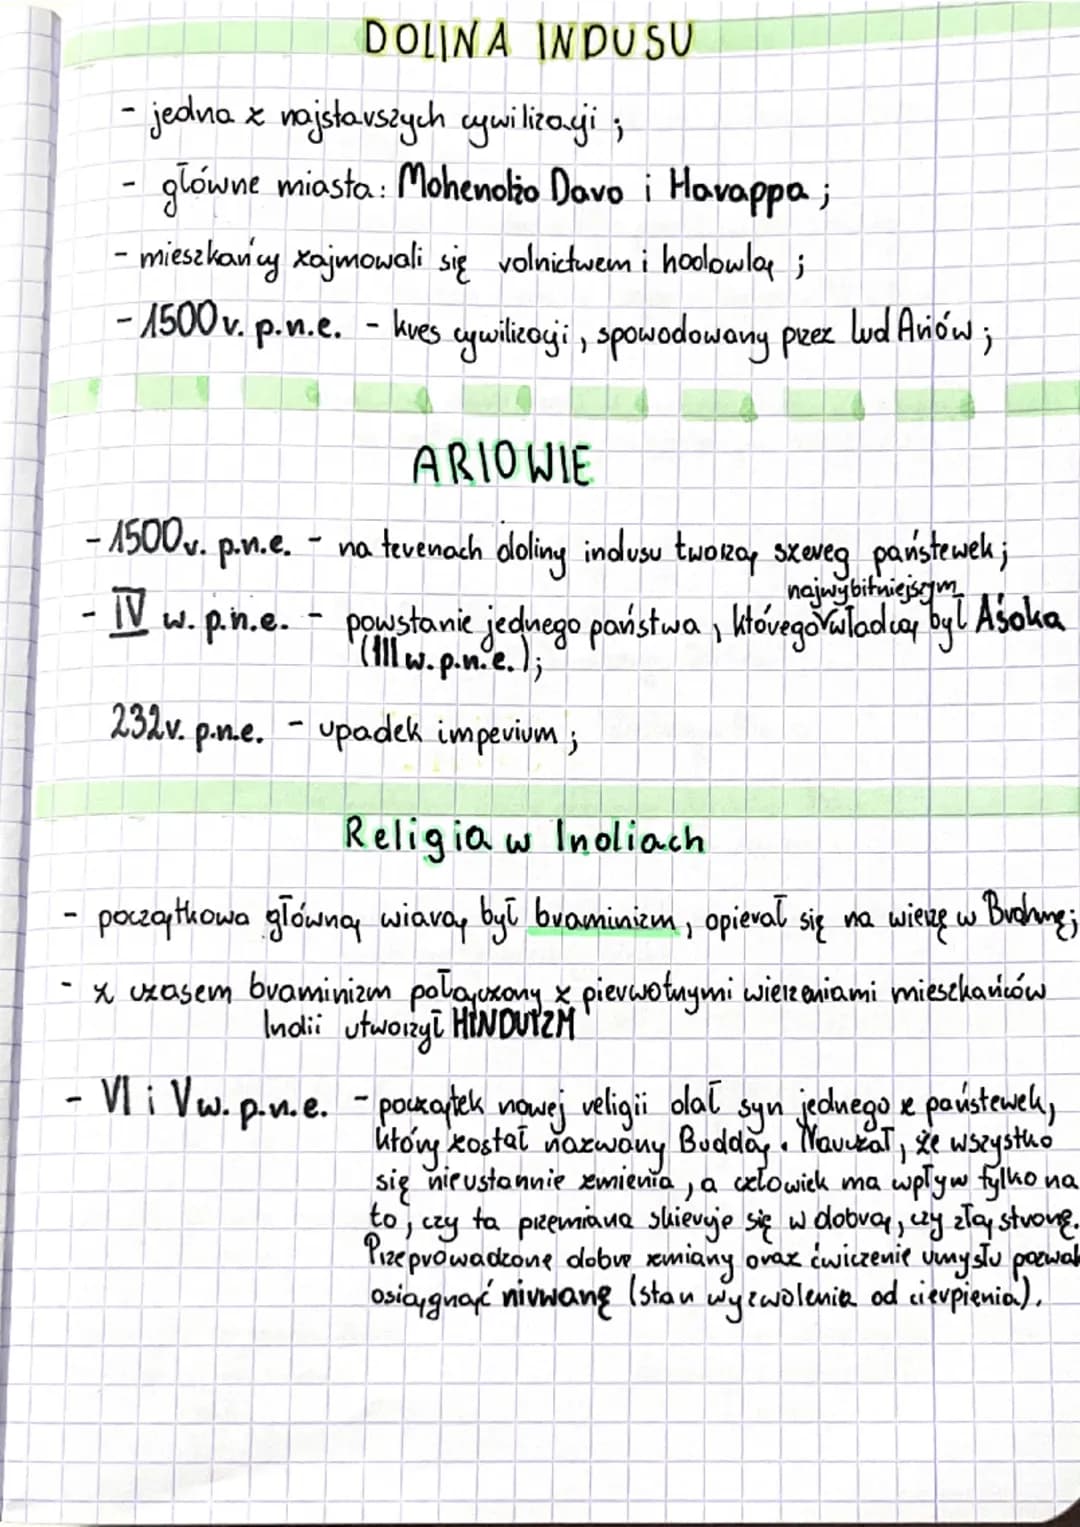 DOLINA INDUSU
- jedna z najstarszych cywilizacji ;
- główne miasta: Mohendżo Daro i Harappa ;
- mieszkańcy zajmowali się rolnictwem i hodowlą ;
- 1500 r. p.n.e. - kres cywilizacji, spowodowany przez lud Ariów ;
ARIOWIE
- 1500 r. p.n.e. - na terenach doliny indusu tworzą szereg państewek ;
najwybitniejszym
- IV w. p.n.e. - powstanie jednego państwa, którego władcą był Aśoka
(III w. p.n.e.);
232 r. p.n.e. - upadek imperium ;
Religia w Indiach
- początkowa główną wiarą był braminizm, opierał się na wierzę w Brahmę;
- z czasem braminizm połączony z pierwotnymi wierzeniami mieszkańców
Indii utworzył HINDUIZM
- VI i V w. p.n.e. - początek nowej religii dał syn jednego z państewek,
który został nazwany Buddą. Nauczał, że wszystko
się nieustannie zmienia, a człowiek ma wpływ tylko na
to, czy ta przemiana skieruje się w dobrą, czy złą stronę.
Przeprowadzone dobre zmiany oraz ćwiczenie umysłu pozwal
osiągnąć nirwanę (stan wyzwolenia od cierpienia).